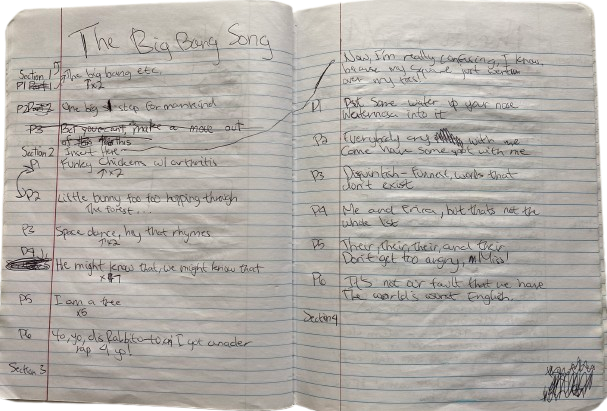 The Big Bang Song
Section 1
P1 The big bang etc.
↑x2
P2 One big step for mankind
P3 Bet you can't, make a move out
of this
Section 2 Insert Here
P1 Funky Chickens w/ arthritis
↑x2
P2 Little bunny foo foo hopping through
the forest...
P3 Space dance, hey that rhymes
↑x2
P4
He might know that, we might know that
P5 I am a tree
x5
P6 Yo, yo, dis I got anader
rap 4 yo!
Section 3
Now, I'm really confusing, I know,
because my
over my
P1 some water up your nose
into it
P2 Everybody with me
Come have some with me
P3 Funnest, words that
don't exist
P4 Me and Erica, but thats not the
whole list
P5 Their, their, their, and their
Don't get too angry, Miss!
P6 It's not our fault that we have
The world's worst English.
Section 4